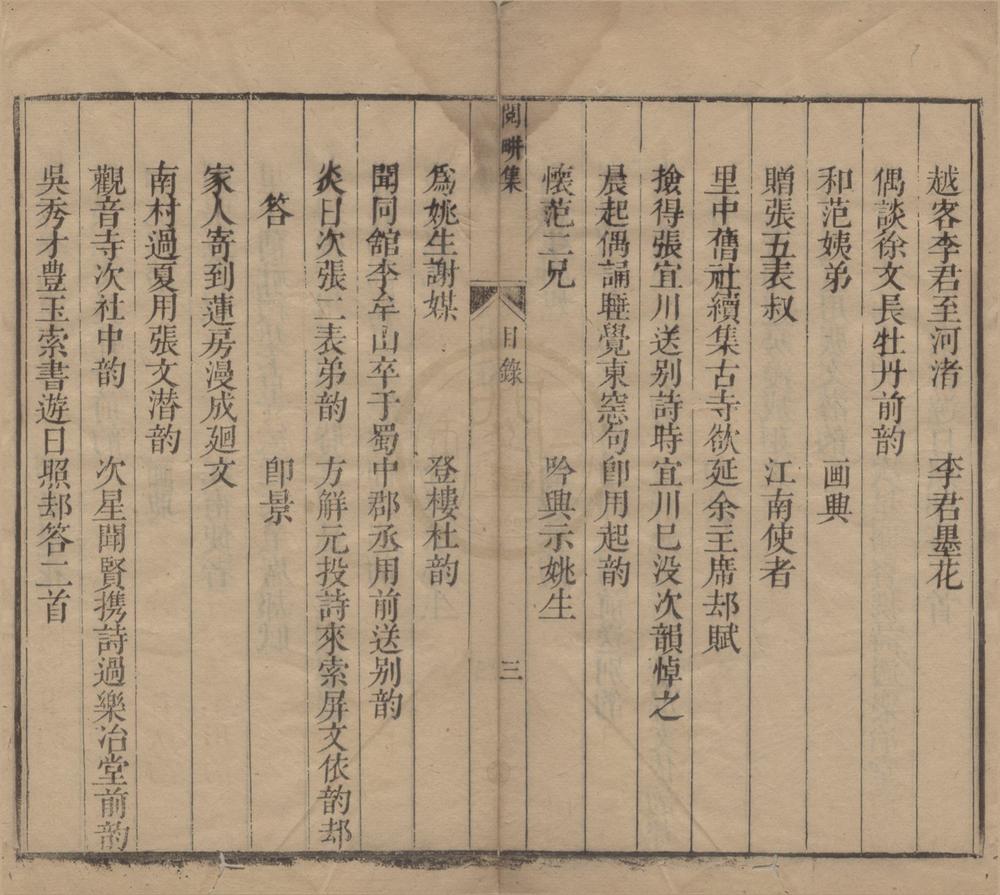 越客李君至河渚　李君墨花
偶談徐文長牡丹前韵
和范姨弟　画興
贈張五表叔　江南使者
里中舊社續集古寺欲延余主席却賦
撿得張宜川送别詩時宜川巳没次韻悼之
晨起偶誦睡覺東窓句卽用起韵
懷范二兄　吟興示姚生
閱耕集　目錄　三
爲姚生謝媒　登樓杜韵
聞同舘李牟山卒于蜀中郡丞用前送别韵
炎日次張二表弟韵　方解元投詩來索屏文依韵却
答　卽景
家人寄到蓮房漫成廻文
南村過夏用張文潜韵
觀音寺次社中韵　次星聞賢携詩過樂冶堂前韵
吳秀才豊玉索書遊日照却答二首